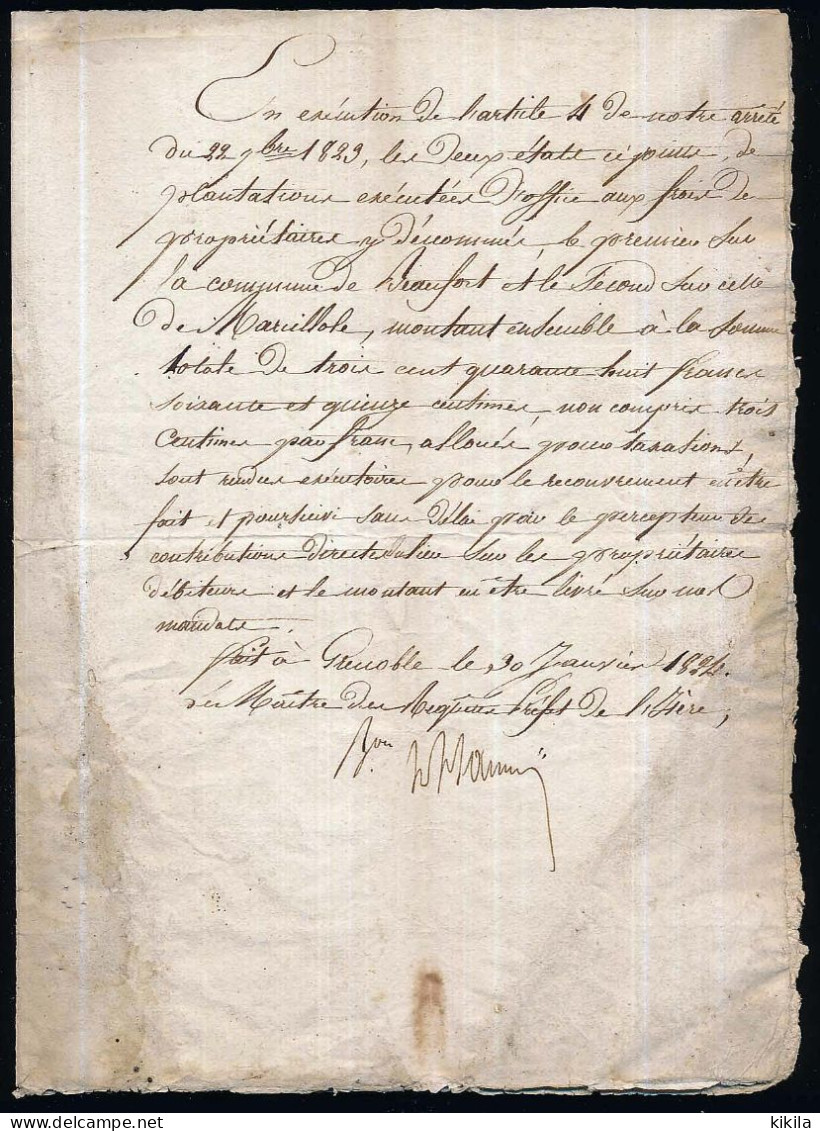 En exécution de l'article 4 de notre arrêté
du 22 9bre 1823, les deux états ci joints, de
plantations exécutées d'office aux frais de
propriétaires y dénommés, le premier sur
la commune de Beaufort et le second sur celle
de Marcillole, montant ensemble à la somme
totale de trois cent quarante huit francs
soixante et quinze centimes, non compris trois
centimes par franc, alloués pour taxations,
sont rendus exécutoires pour le recouvrement en être
fait et poursuivi sans délai par le percepteur des
contributions directes du lieu sur les propriétaires
débiteurs et le montant en être livré sur nos
mandats.
fait à Grenoble le 30 Janvier 1824.
Le Maître des Requêtes Préfet de l'Isère,
Bon
kikila